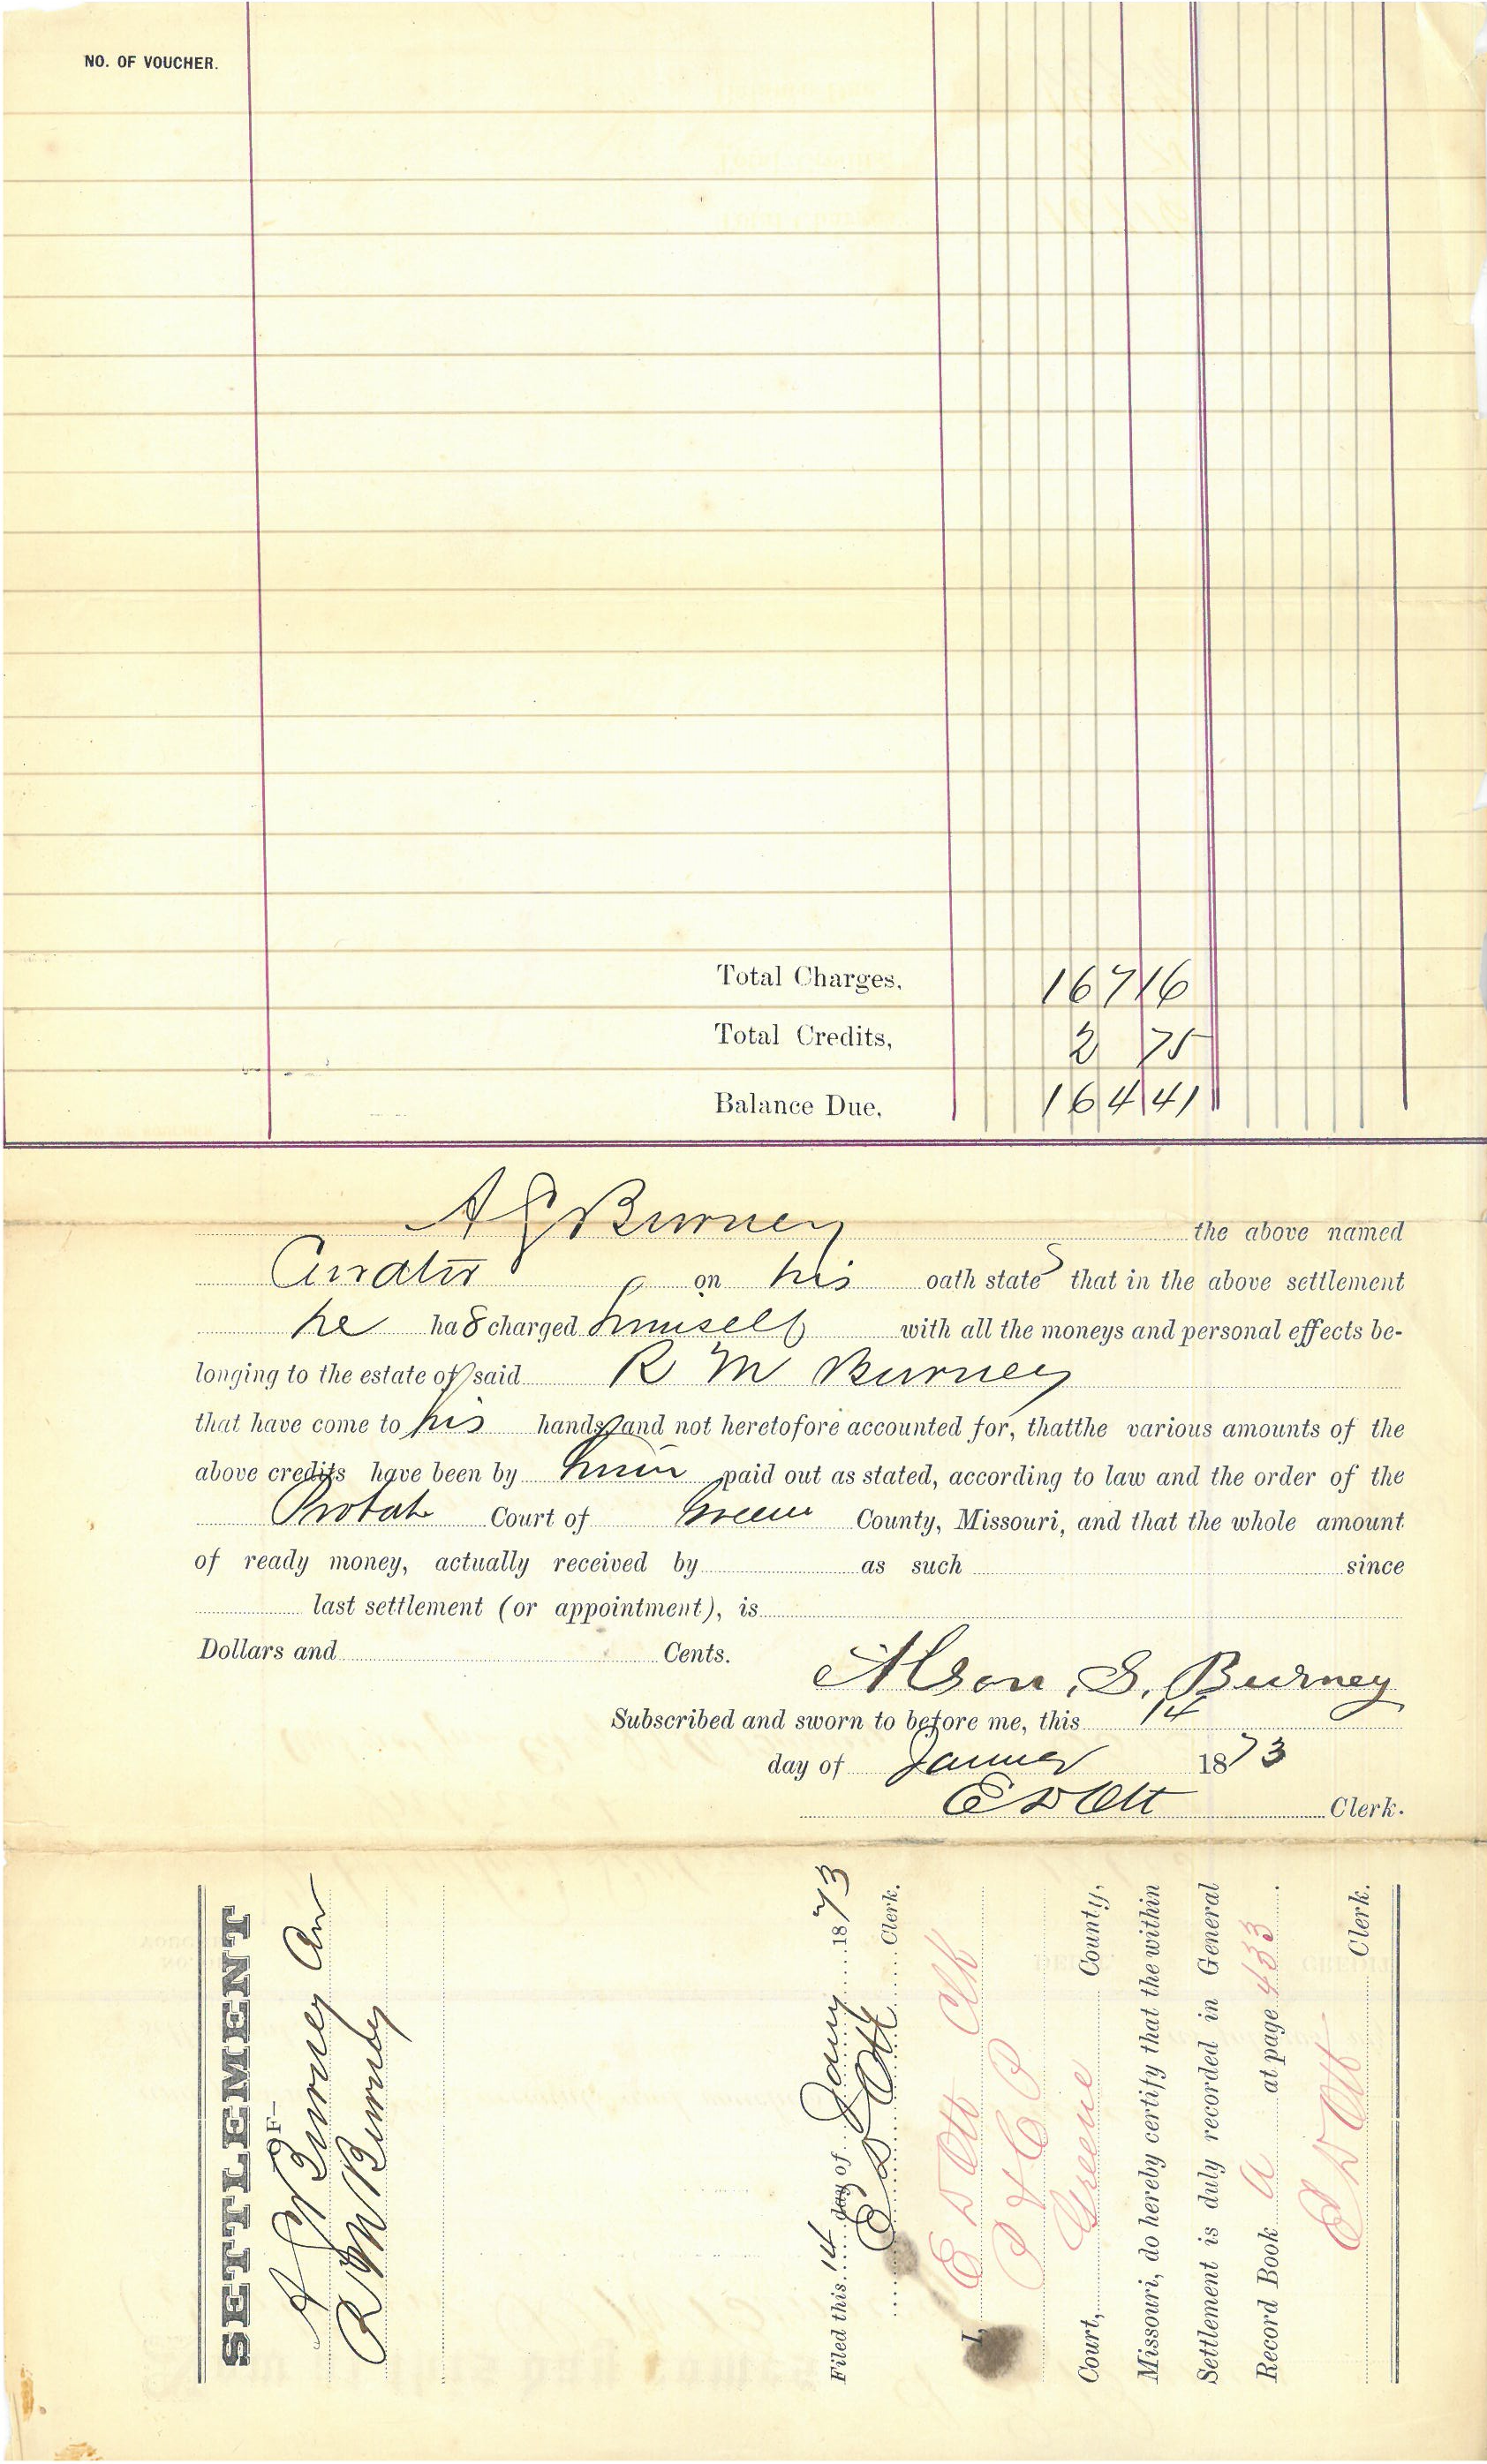 NO. OF VOUCHER.
Total Charges, 167 16
Total Credits, 2 75
Balance Due, 164 41
A S Burney the above named
Curator on his oath states that in the above settlement
he has charged himself with all the moneys and personal effects be-
longing to the estate of said R M Burney
that have come to his hands and not heretofore accounted for, thatthe various amounts of the
above credits have been by him paid out as stated, according to law and the order of the
Probate Court of Greene County, Missouri, and that the whole amount
of ready money, actually received by as such since
last settlement (or appointment), is
Dollars and Cents.
Alson. S. Burney
Subscribed and sworn to before me, this 14
day of January 1873
E D Ott Clerk.
SETTLEMENT
—OF—
A S Burney Cur
R M Burney
Filed this 14 day of Jany 1873
E D Ott Clerk.
I, E D Ott Clk
P & C P
Court, Greene County,
Missouri, do hereby certify that the within
Settlement is duly recorded in General
Record Book A at page 433.
E D Ott Clerk.